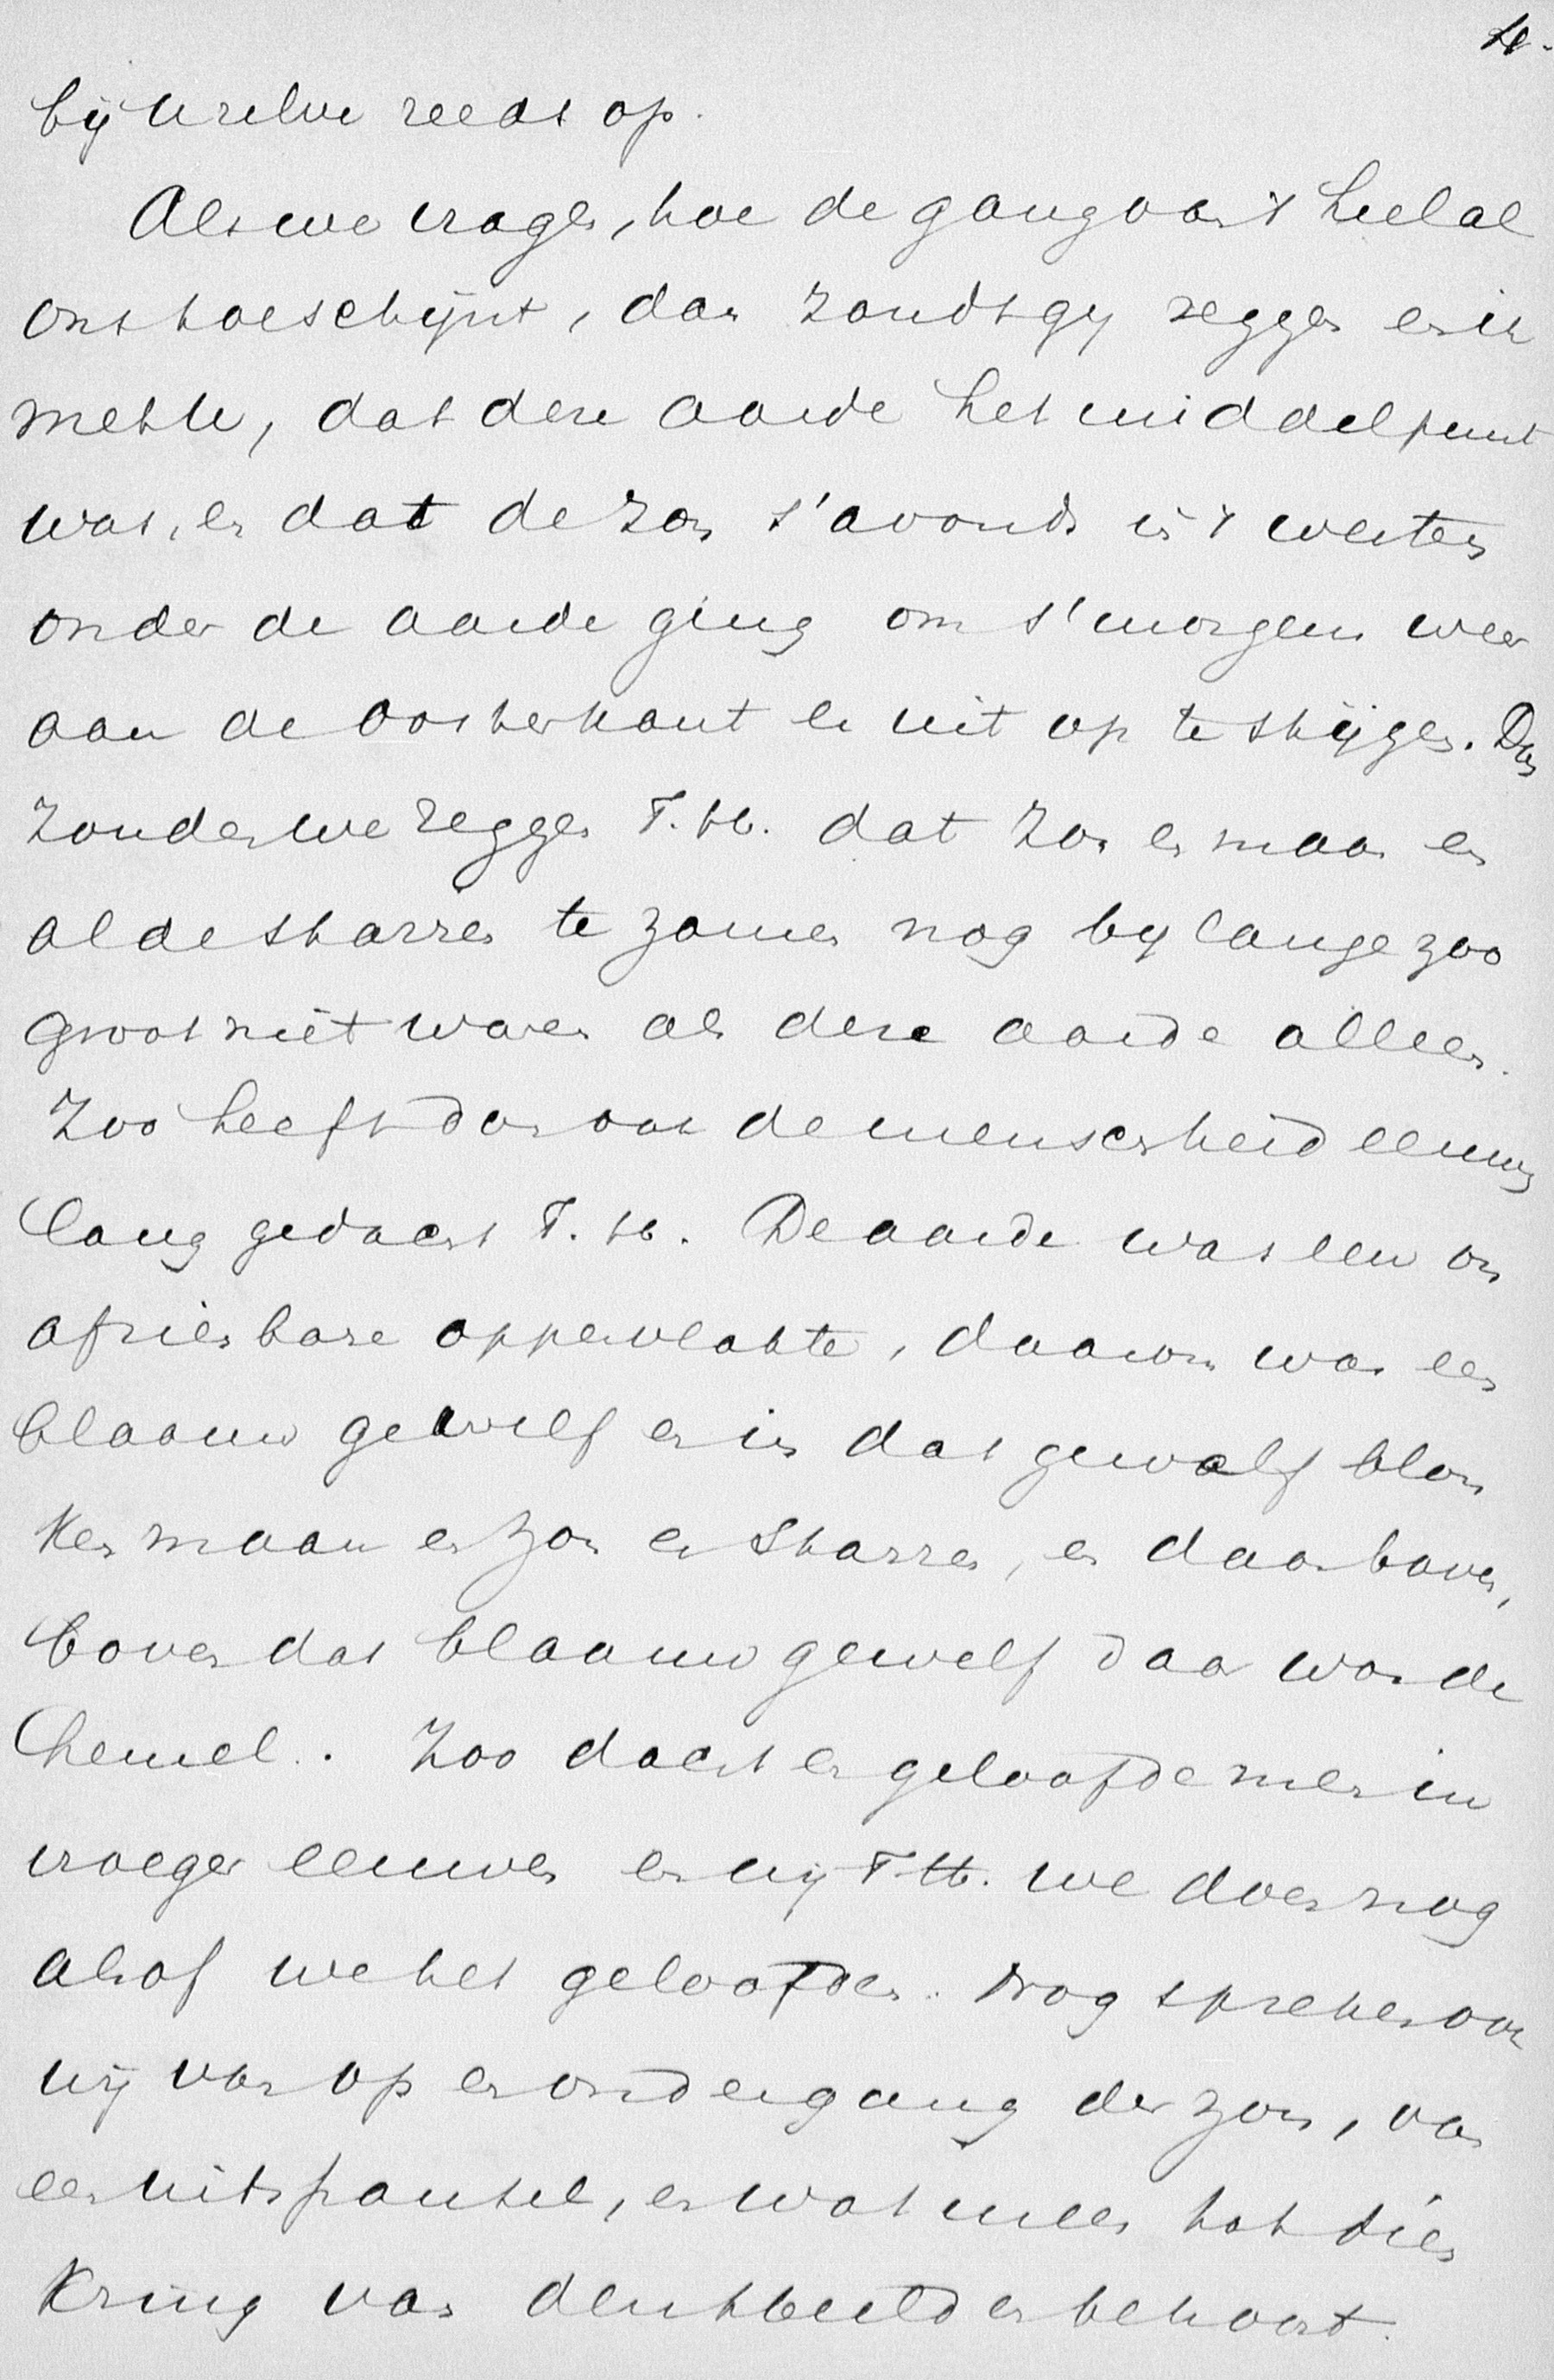 4.
bij velve reeds op.
Als we vragen, hoe de gang van 't heelal
ons toeschijnt, dan zoudt gy zeggen en ik
met U, dat deze aarde het middelpunt
was, en dat de zon s'avonds in 't westen
onder de aarde ging om s'morgens weer
aan de oosterkant er uit op te stijgen. Dan
zouden we zeggen T.H. dat zon en maan en
al de starren te zamen nog by lange zoo
groot niet waren als deze aarde alleen.
Zoo heeft dan ook de menschheid eeuwen
lang gedacht T.H. De aarde was een on
afzienbare oppervlakte, daarom was een
blaauw gewelf en in dat gewelf blon
ken maan en zon en starren, en daarboven,
boven dat blaauw gewelf daar was de
hemel. Zoo dacht en geloofde men in
vroeger eeuwen en wij T.H. we doen nog
alsof we het geloofden. Nog spreken ook
wij van op en ondergang der zon, van
een uitspansel, en wat meer tot dien
kring van denkbeelden behoort.